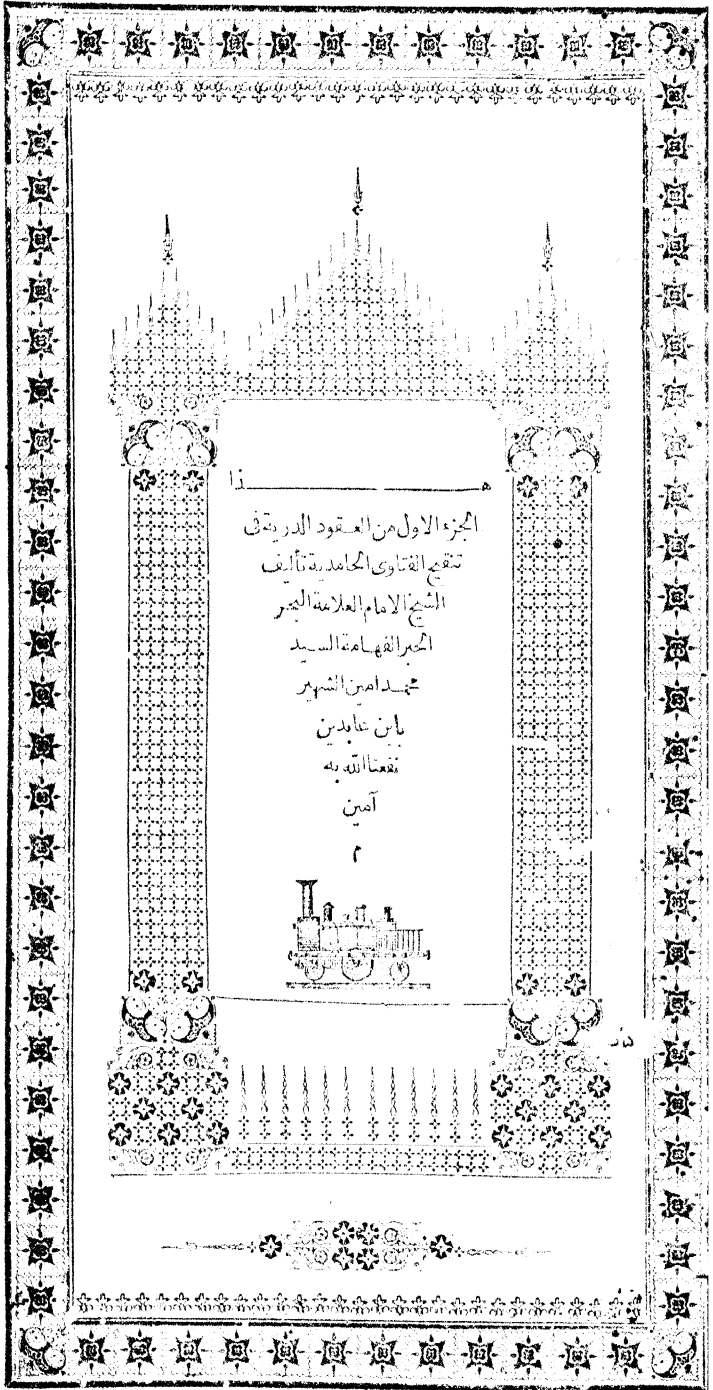 هـــــــــــــــذا
الجزء الاول من العقود الدرية فى
تنقيح الفتاوى الحامدية تأليف
الشيخ الامام العلامة البحر
الحبر الفهامة السيد
محمد امين الشهير
بابن عابدين
نفعنا الله به
آمين
م